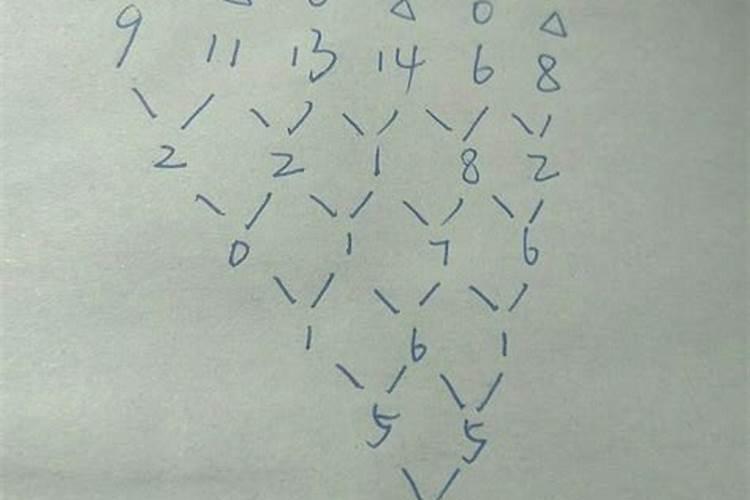 △ 0 △ 0 △
9 11 13 14 6 8
2 2 1 8 2
0 1 7 6
1 6 1
5 5